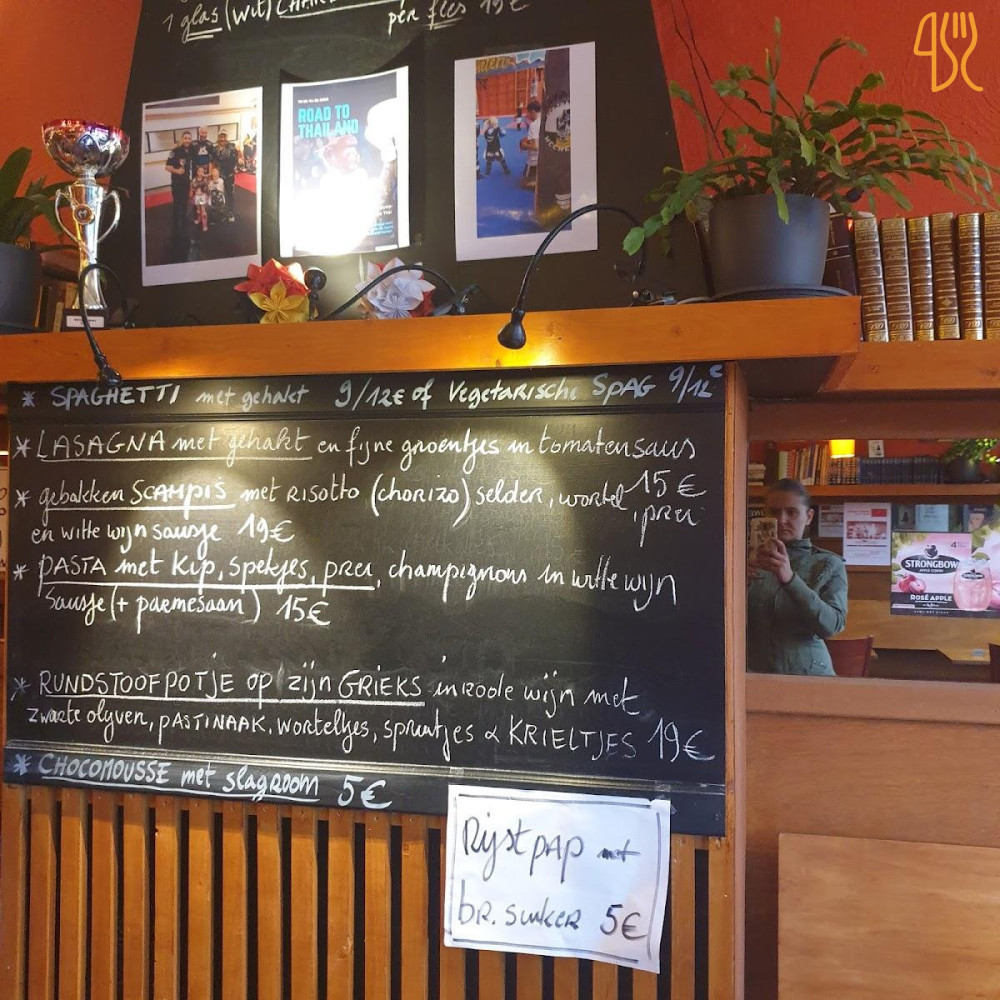 1 glas (wit)
per fles 19€
ROAD TO
THAILAND
* SPAGHETTI met gehakt 9/12€ of Vegetarische SPAG 9/12€
* LASAGNA met gehakt en fijne groentjes in tomatensaus
15€
* gebakken SCAMPIS met RISOTTO (chorizo) selder, wortel, prei
en witte wijn sausje 19€
* PASTA met Kip, spekjes, prei, champignons in witte wijn
Sausje (+ parmesaan) 15€
* RUNDSTOOFPOTJE op zijn GRIEKS in rode wijn met
zwarte olijven, PASTINAAK, worteltjes, spruitjes & KRIELTJES 19€
* CHOCOMOUSSE met slagroom 5€
Rijstpap met
br. suiker 5€
STRONGBOW
ROSÉ APPLE